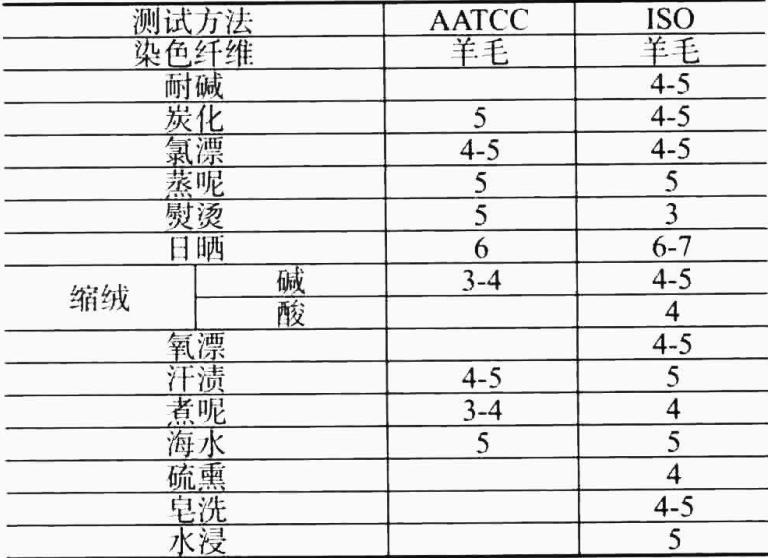 测试方法 AATCC ISO
染色纤维 羊毛 羊毛
耐碱 4-5
炭化 5 4-5
氯漂 4-5 4-5
蒸呢 5 5
熨烫 5 3
日晒 6 6-7
缩绒 碱 3-4 4-5
酸 4
氧漂 4-5
汗渍 4-5 5
煮呢 3-4 4
海水 5 5
硫熏 4
皂洗 4-5
水浸 5